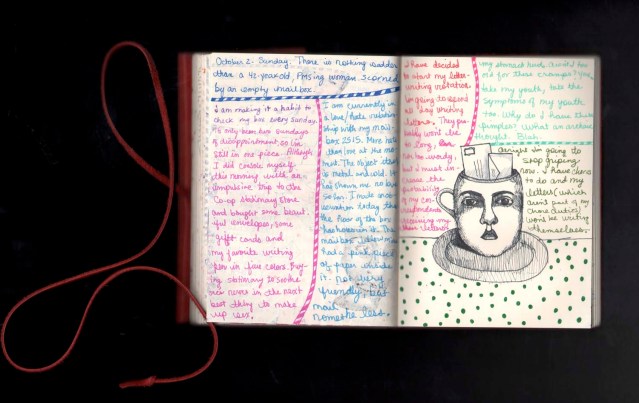 October 2. Sunday. There is nothing sadder
than a 42 year old, PMSing woman. Scorned
by an empty mailbox.
I am making it a habit to
check my box every Sunday.
It's only been two Sundays
of disappointment so I'm
still in one piece. Although
I did console myself
this morning with an
impulsive trip to the
Co-op stationary store
and bought some beaut-
iful envelopes, some
gift cards and
my favorite writing
pen in five colors. Buy-
ing stationary to soothe
raw nerves is the next
best thing to make
up sex.
I am currently in
a love/hate relation-
ship with my mail-
box 2515. More hate
than love at the mo-
ment. The object
is metal and cold.
has shown me no love
so far. I made
today that
the floor of the box
has
mailbox
had a pink piece
of paper inside
it. not very
friendly, but
mail
nonetheless.
I have decided
to start my letter-
writing rotation.
I'm going to spend
a day writing
letters. They pro-
bably won't be
so long,
not be wordy,
but I must in-
crease the
probability
of my cor-
respondents
receiving my
letters
my stomach hurts. Aren't I too
old for these cramps? You
take my youth, take the
symptoms of my youth
too. Why do I have these
pimples? What an
thought. Blah.
Alright I'm going to
stop griping
now. I have chores
to do and my
letters (which
aren't part of my
chore duties)
won't be writing
themselves.